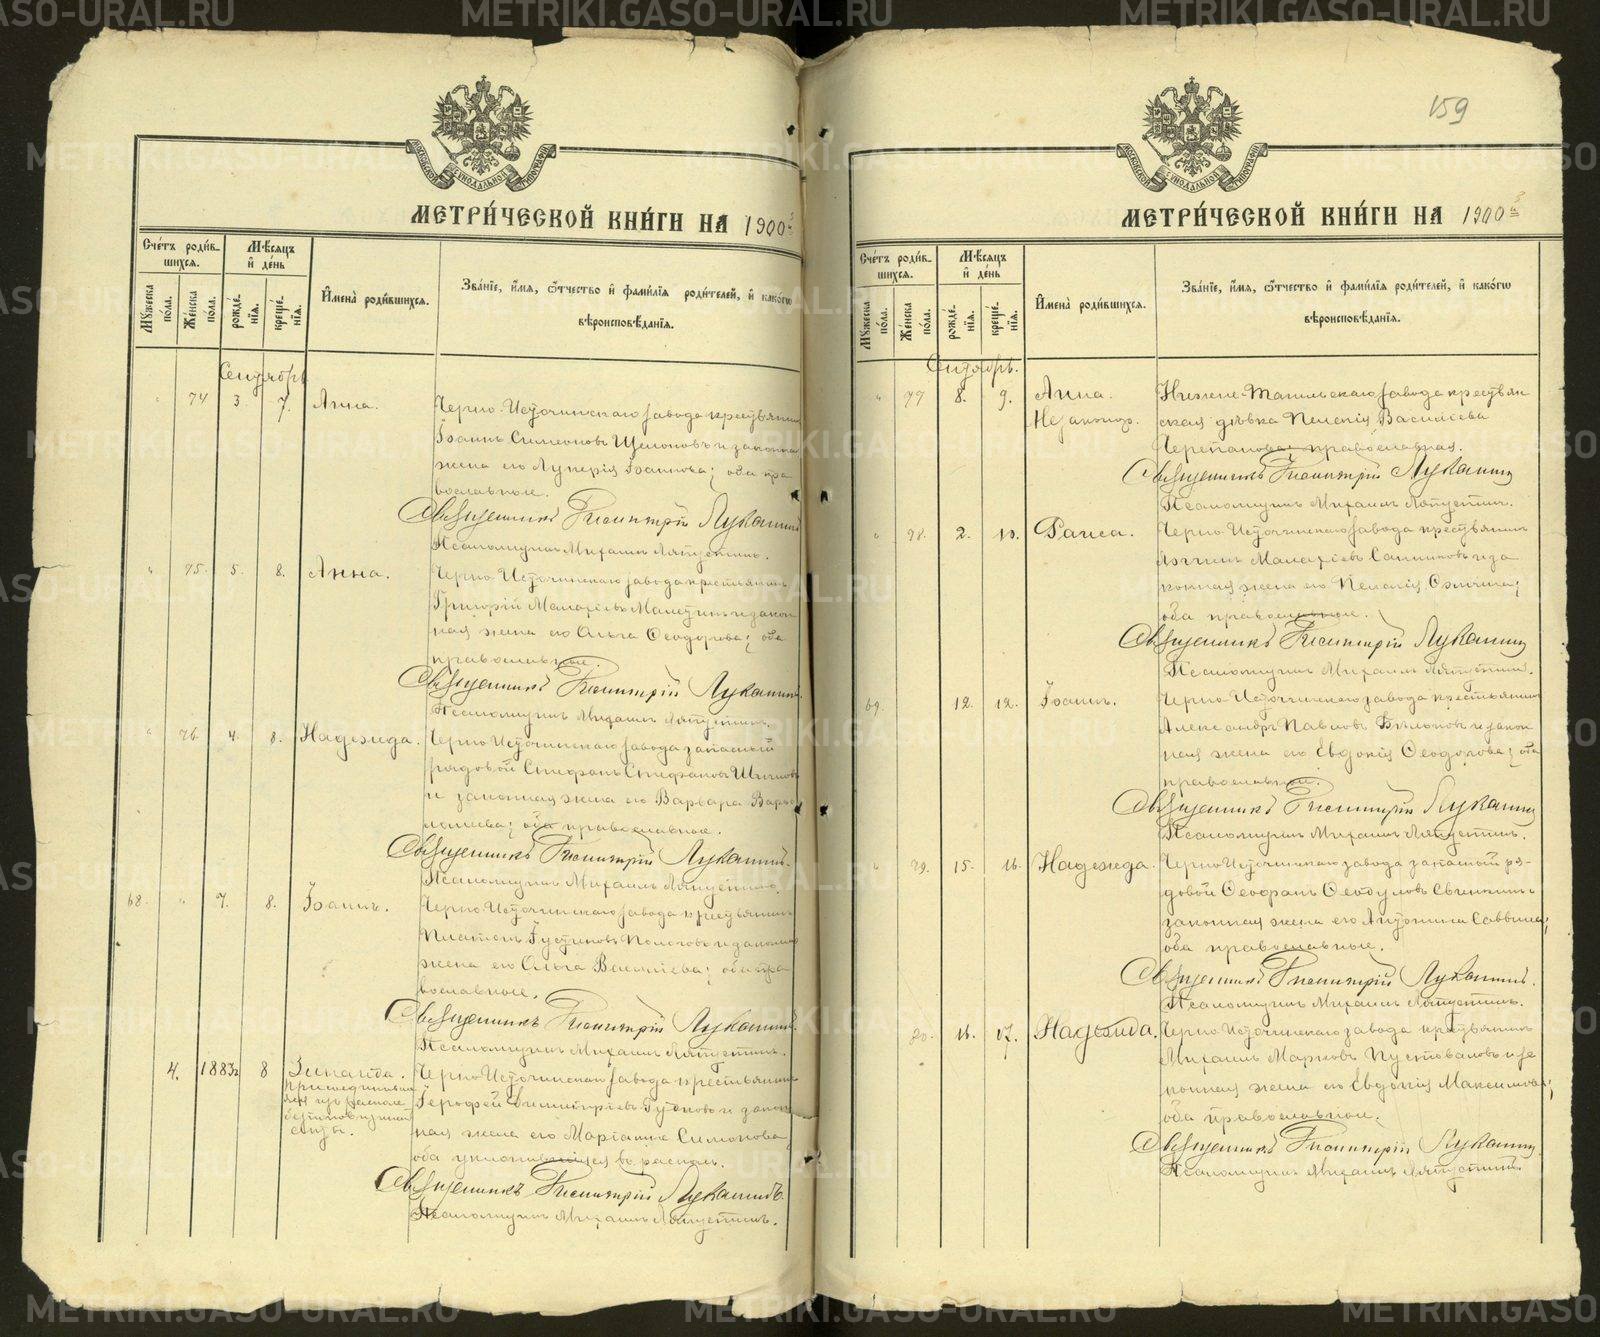 МЕТРИ́ЧЕСКОЙ КНИ́ГИ НА 1900 й
Сче́тъ роди́в-
шихся.
Мѣ́сяцъ
и де́нь
Мꙋ́жеска
по́ла.
Же́нска
по́ла.
рожде́-
нїя.
креще́-
нїя.
И҆мена̀ роди́вшихся.
Зва́нїе, и҆́мя, ѻ҆́тчество и҆ фами́лїя роди́телей, и҆ како́гѡ
вѣроисповѣ́данїя.
Сентябрь
" 74 3. 7. Анна.
Черно-Источинскаго завода крестьянинъ
Іоаннъ Симеоновъ и законная
жена его Іоаннова; оба пра-
вославные.
Священникъ Димитрій Лукашинъ
Псаломщикъ Михаилъ Ляпустинъ.
" 75. 5. 8. Анна.
Черно-Источинскаго завода крестьянинъ
Григорій и закон-
ная жена его Ольга Ѳеодорова; оба
православные.
Священникъ Димитрій Лукашинъ.
Псаломщикъ Михаилъ Ляпустинъ.
" 76. 4. 8. Надежда.
Черно-Источинскаго завода запасный
рядовой Стефанъ Стефановъ
и законная жена его Варвара
оба православные.
Священникъ Димитрій Лукашинъ.
Псаломщикъ Михаилъ Ляпустинъ.
68. " 7. 8. Іоаннъ.
Черно-Источинскаго завода крестьянинъ
Платонъ и законная
жена его Ольга Васильева; оба пра-
вославные.
Священникъ Димитрій Лукашинъ.
Псаломщикъ Михаилъ Ляпустинъ.
4. 1883 8 Зинаида.
Черно-Источинскаго завода крестьянинъ
Димитріевъ и закон-
ная жена его Симонова
оба въ расколъ.
Священникъ Димитрій Лукашинъ.
Псаломщикъ Михаилъ Ляпустинъ.
159
МЕТРИ́ЧЕСКОЙ КНИ́ГИ НА 1900 й
Сче́тъ роди́в-
шихся.
Мѣ́сяцъ
и де́нь
Мꙋ́жеска
по́ла.
Же́нска
по́ла.
рожде́-
нїя.
креще́-
нїя.
И҆мена̀ роди́вшихся.
Зва́нїе, и҆́мя, ѻ҆́тчество и҆ фами́лїя роди́телей, и҆ како́гѡ
вѣроисповѣ́данїя.
Сентябрь.
" 77 8. 9. Анна.
Незаконор.
Нижне-Тагильскаго завода крестьян-
ская дѣвка Пелагія Васильева
Черепанова, православная.
Священникъ Димитрій Лукашинъ
Псаломщикъ Михаилъ Ляпустинъ.
" 78. 2. 10. Раиса.
Черно-Источинскаго завода крестьянинъ
и за-
конная жена его Пелагія
оба православные.
Священникъ Димитрій Лукашинъ
Псаломщикъ Михаилъ Ляпустинъ.
69. 12. 12. Іоаннъ.
Черно-Источинскаго завода крестьянинъ
Александръ Павловъ и закон-
ная жена его Евдокія Ѳеодорова; оба
православные.
Священникъ Димитрій Лукашинъ
Псаломщикъ Михаилъ Ляпустинъ.
" 79. 15. 16. Надежда.
Черно-Источинскаго завода запасный ря-
довой Ѳеофанъ Ѳеодуловъ и
законная жена его Антонина Саввина;
оба православные.
Священникъ Димитрій Лукашинъ.
Псаломщикъ Михаилъ Ляпустинъ.
80. 16. 17. Надежда.
Черно-Источинскаго завода крестьянинъ
Михаилъ Марковъ Пустоваловъ и за-
конная жена его Евдокія Максимова;
оба православные.
Священникъ Димитрій Лукашинъ.
Псаломщикъ Михаилъ Ляпустинъ
METRIKI.GASO-URAL.RU